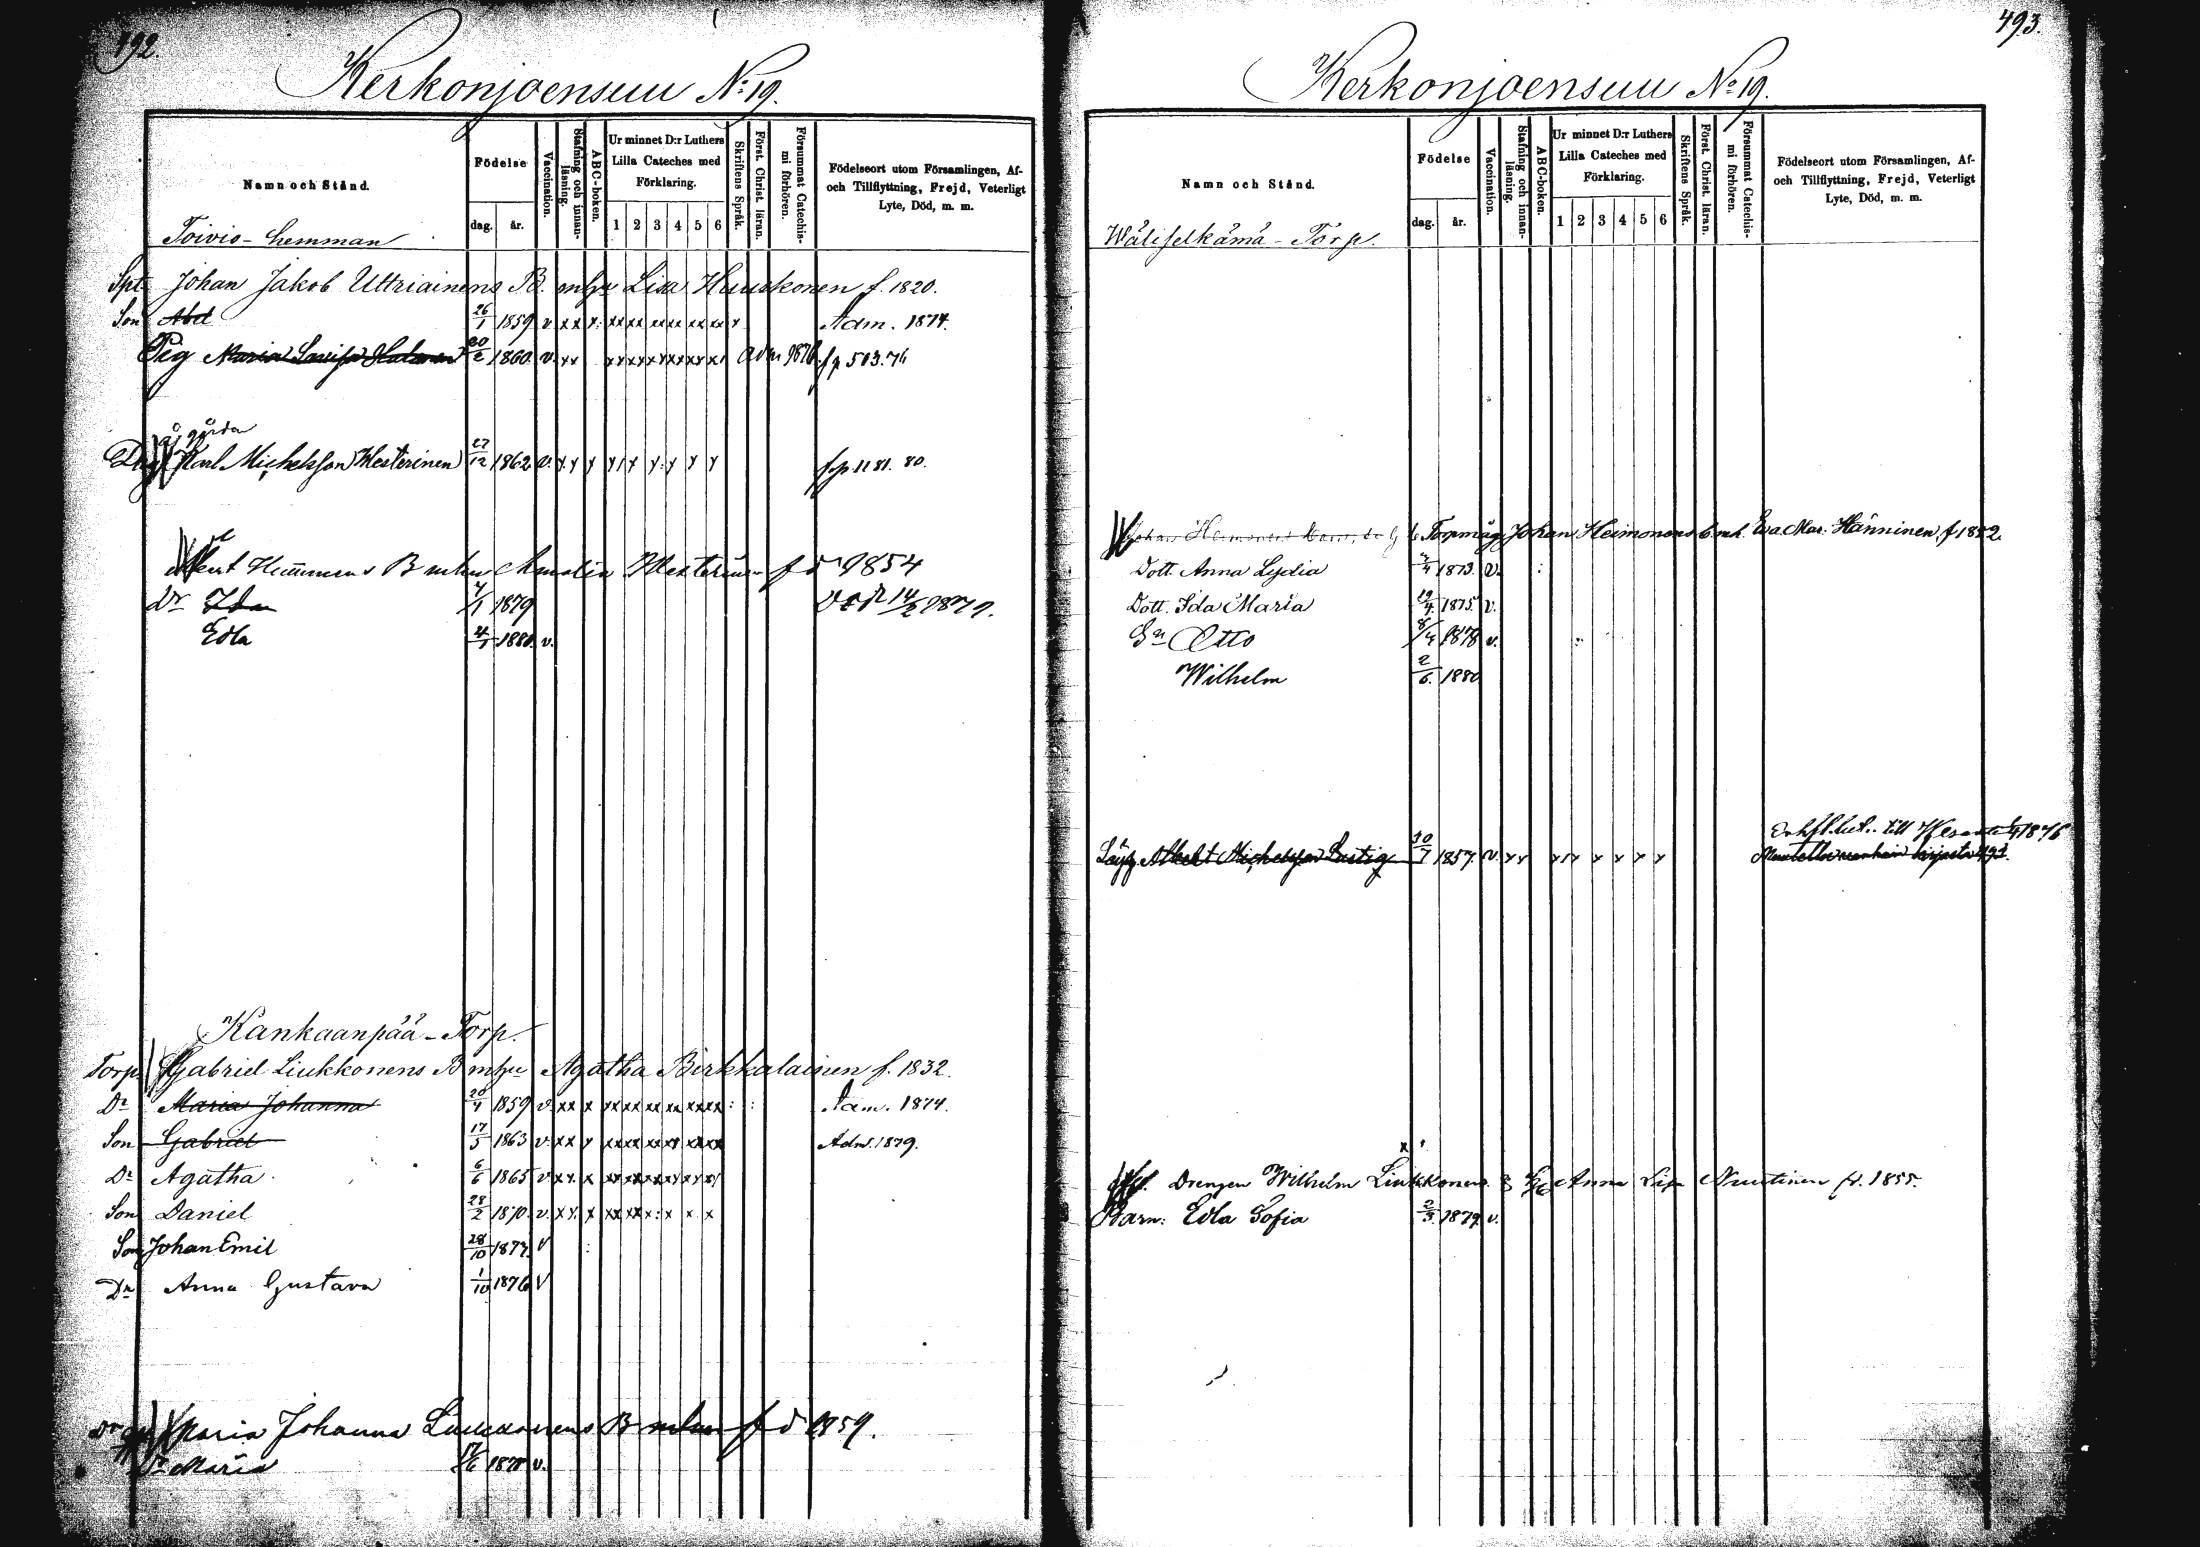 492.
Kerkonjoensuu No 19.
Namn och Stånd.
Födelse
dag.
år.
Vaccination.
Stafning och innanläsning.
ABC-boken.
Ur minnet D:r Luthers
Lilla Cateches med
Förklaring.
1 2 3 4 5 6
Skriftens Språk.
Först. Christ. läran.
Försummat Catechismi förhören.
Födelseort utom Församlingen, Af-
och Tillflyttning, Frejd, Veterligt
Lyte, Död, m. m.
Toivio-hemman
Spt. Johan Jakob Uttriainens B. mhu Lisa Huuskonen f. 1820.
Son Abel 26/1 1859 v xx x: xx xx xx xx xx xx x Adm. 1874.
Pig Maria Lovisa 20/2 1860 v. xx Adm 1876 fp 503.76
Karl Michelsson Westerinen 27/12 1862 v. fp 1181. 80.
B mhu Amalia Westerinen fd 1854
Dr Ida 4/1 1879 död 14/2 1879.
Edla 4/1 1880 v.
Kankaanpää-Torp.
Torp. Gabriel Liukkonens B mhu Agatha Birkkalainen f. 1832.
Dr Maria Johanna 20/4 1859 v. xx x xx xx xx xx xx xx : : Adm. 1874.
Son Gabriel 17/5 1863 v. xx x xx xx xx xx xx xx Adm. 1879.
Dr Agatha 6/6 1865 v. xx. x
Son Daniel 28/2 1870. v. xx. x
Son Johan Emil 28/10 1873 v :
Dr Anna Gustava 1/10 1876 v
Maria Johanna Liukkonens B mhu fd 1859.
Dr Maria 17/6 1878 v.
493.
Kerkonjoensuu No 19.
Namn och Stånd.
Födelse
dag.
år.
Vaccination.
Stafning och innanläsning.
ABC-boken.
Ur minnet D:r Luthers
Lilla Cateches med
Förklaring.
1 2 3 4 5 6
Skriftens Språk.
Först. Christ. läran.
Försummat Catechismi förhören.
Födelseort utom Församlingen, Af-
och Tillflyttning, Frejd, Veterligt
Lyte, Död, m. m.
Wäliselkämä-Torp.
Torpmåg Johan Heimonens b. mh. Eva Mar. Hänninen f 1852.
Dott. Anna Lydia 1873. v. :
Dott. Ida Maria 19/4 1875 v.
Sn Otto 8/4 1878 v.
Wilhelm 2/6. 1880
Albert Michelsson Lustig 30/7 1857. v. xx
Drengen Wilhelm Liukkonens B Anna Lisa Nuutinen f. 1855.
Barn: Edla Sofia 2/3. 1879 v.